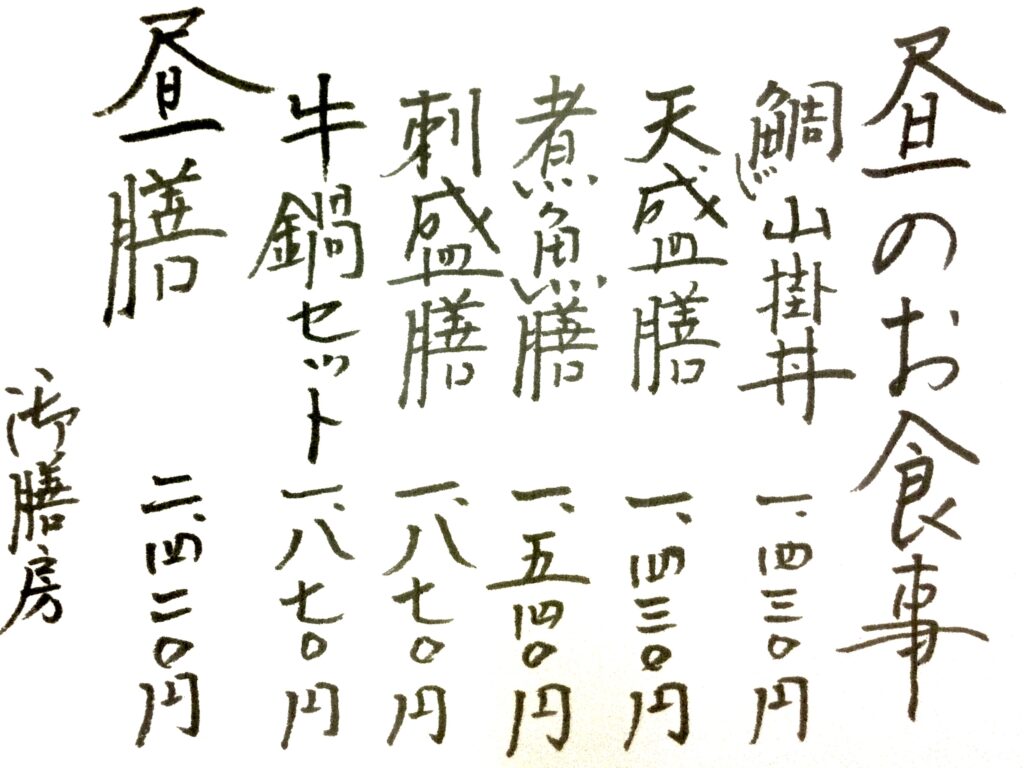 昼のお食事
鯛山掛丼 一、四三〇円
天盛膳 一、四三〇円
煮魚膳 一、五四〇円
刺盛膳 一、八七〇円
牛鍋セット 一、八七〇円
昼膳 二、四二〇円
御膳房